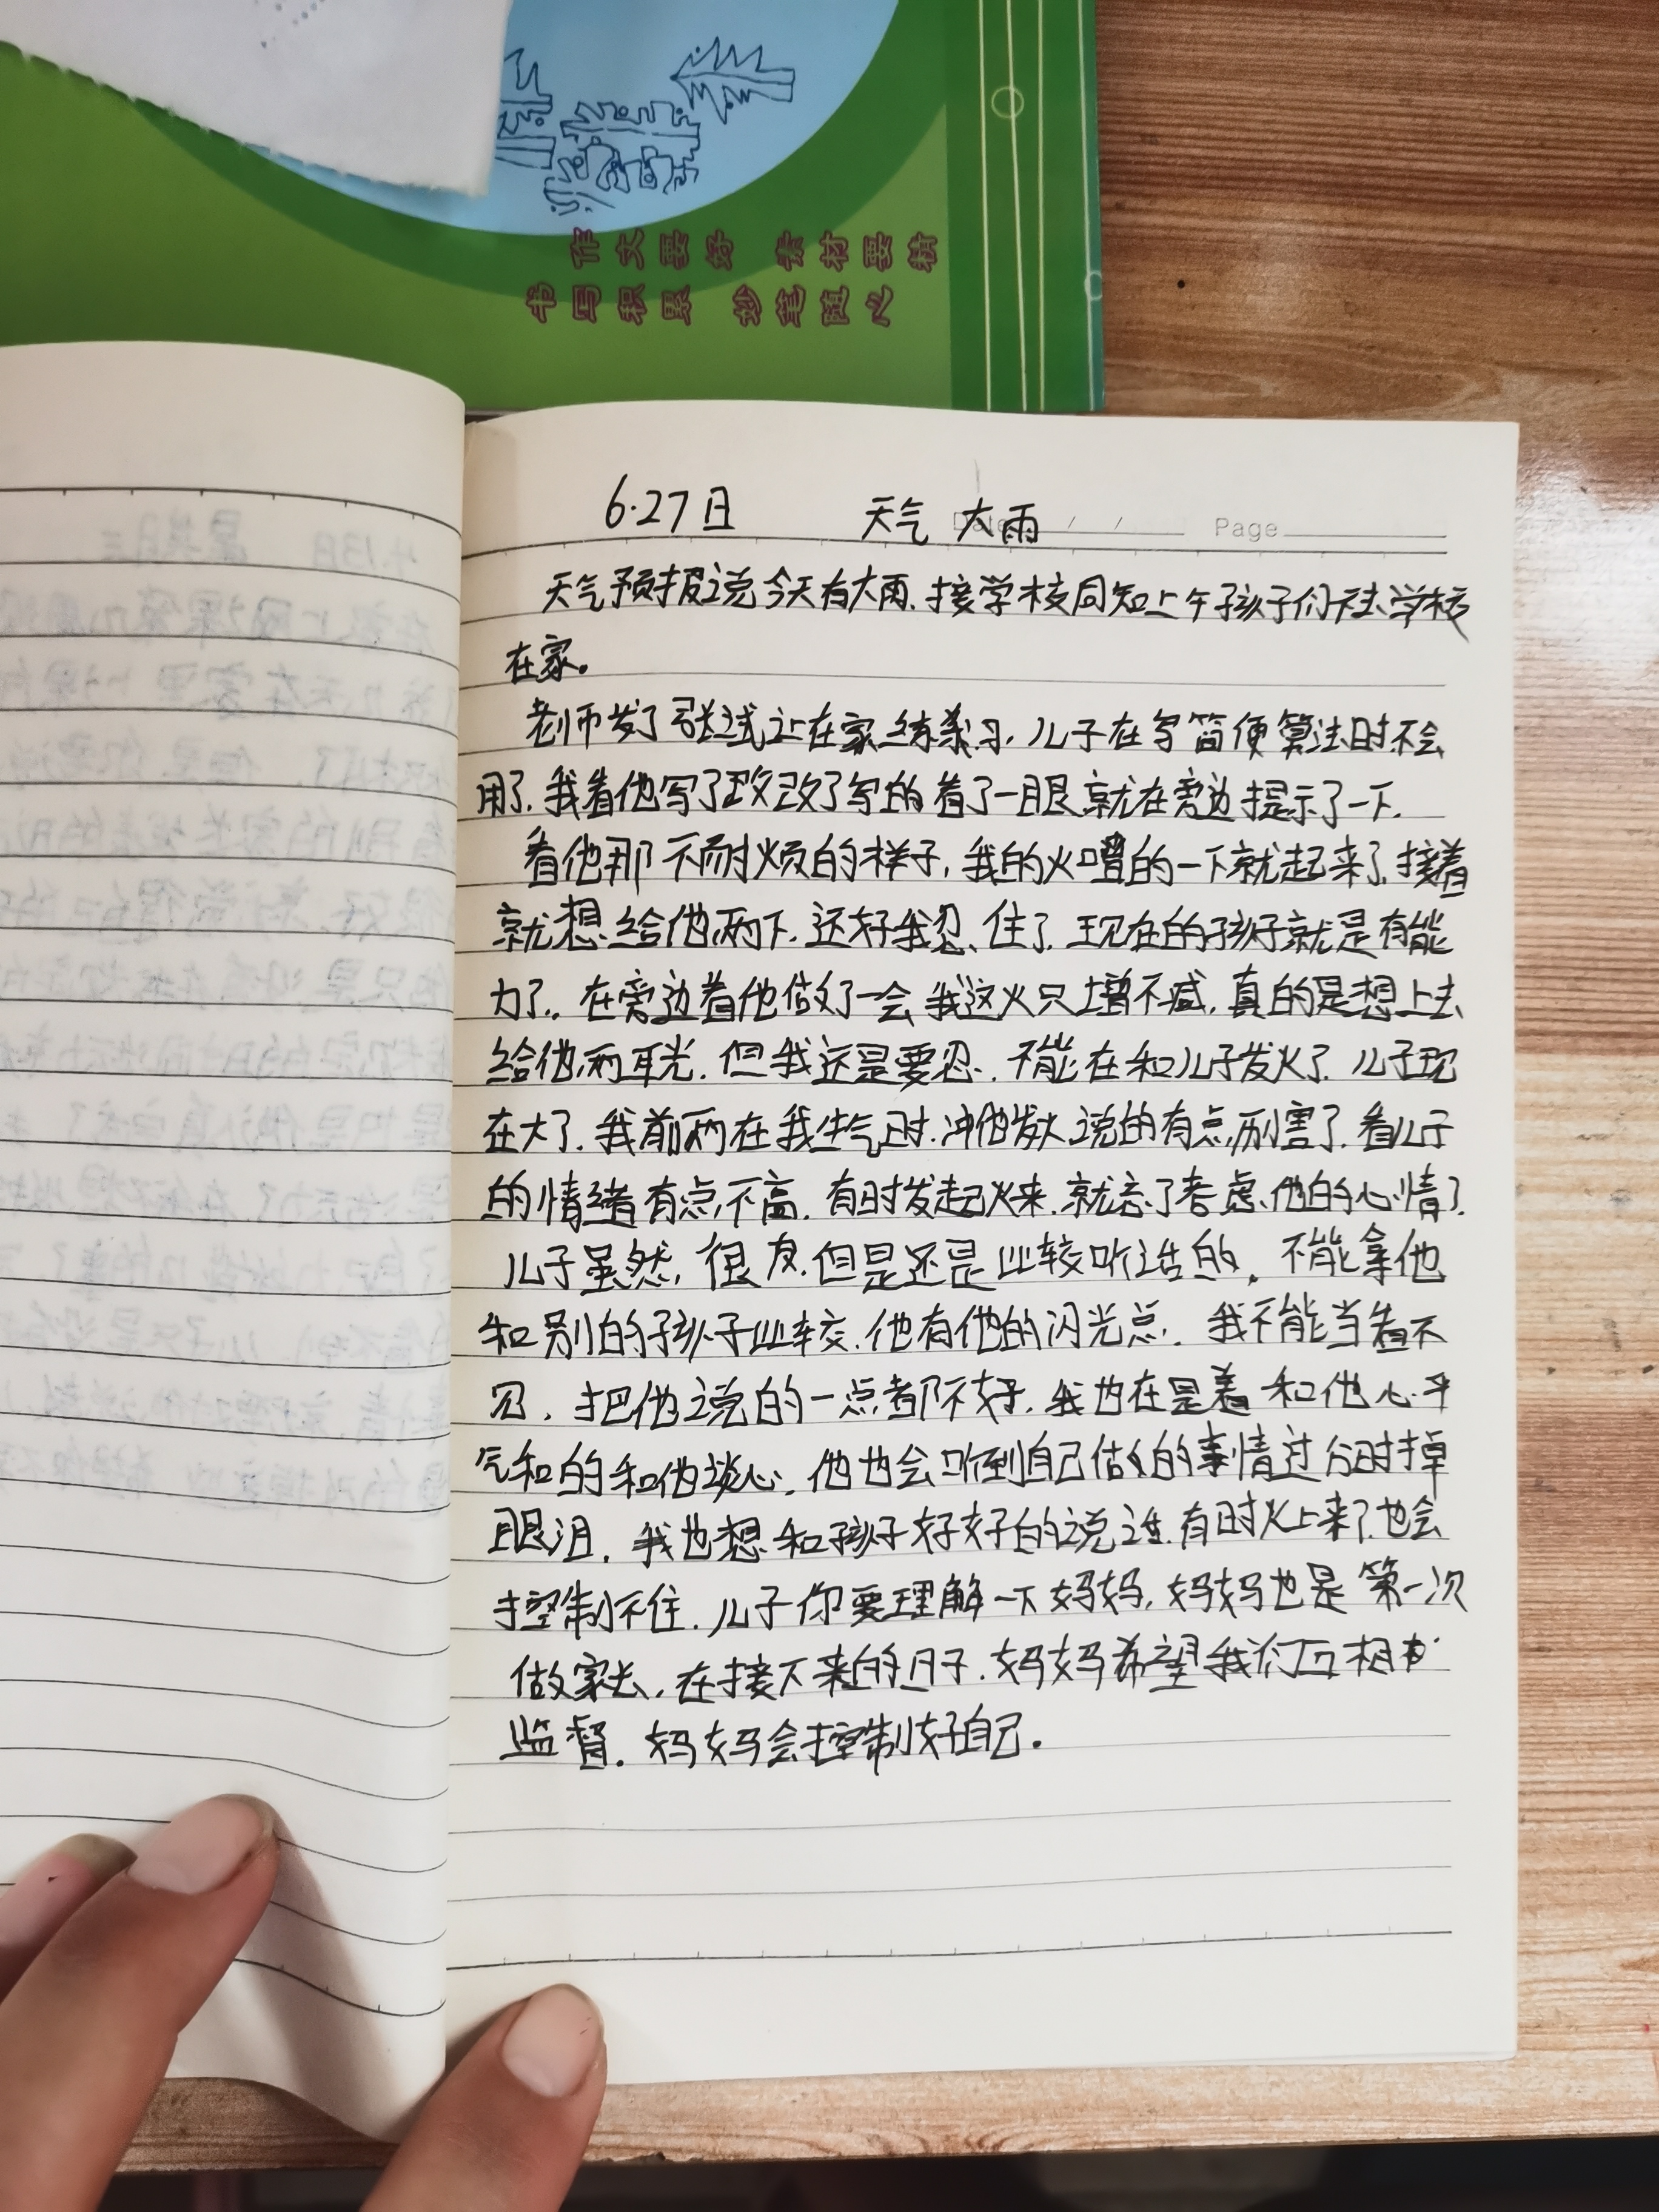 作文要好 素材要精
书写积累 妙笔随心
Date / / Page
6.27日 天气 大雨
天气预报说今天有大雨.接学校同知上午孩子们不去学校
在家。
老师发了张试让在家练习.儿子在写简便算法时不会
用了.我看他写了改改了写的看了一眼就在旁边提示了一下.
看他那不耐烦的样子,我的火噌的一下就起来了.接着
就想给他两下.还好我忍住了.现在的孩子就是有能
力了.在旁边看他做了一会我这火只增不减.真的是想上去
给他两耳光.但我还是要忍.不能在和儿子发火了.儿子现
在大了.我前两在我生气时.冲他发火说的有点厉害了.看儿子
的情绪有点不高.有时发起火来.就忘了考虑他的心情了.
儿子虽然,很皮.但是还是比较听话的.不能拿他
和别的孩子比较.他有他的闪光点.我不能当看不
见.把他说的一点都不好.我也在是着和他心平
气和的和他谈心.他也会听到自己做的事情过分时掉
眼泪.我也想和孩子好好的说话.有时火上来了.也会
控制不住.儿子你要理解一下妈妈,妈妈也是第一次
做家长,在接下来的日子.妈妈希望我们互相
监督.妈妈会控制好自己.